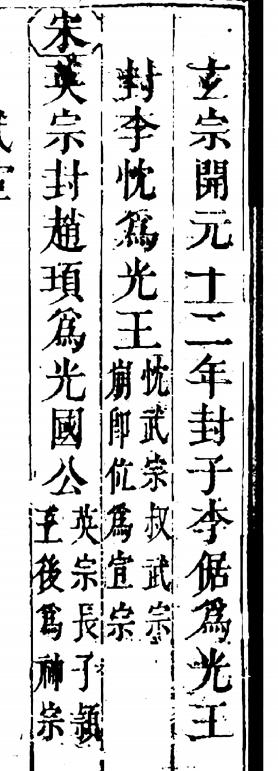 玄宗開元十二年封子李倨爲光王
封李忱爲光王忱武宗叔武宗崩卽位爲宣宗
宋英宗封趙頊爲光國公英宗長子潁王後爲神宗